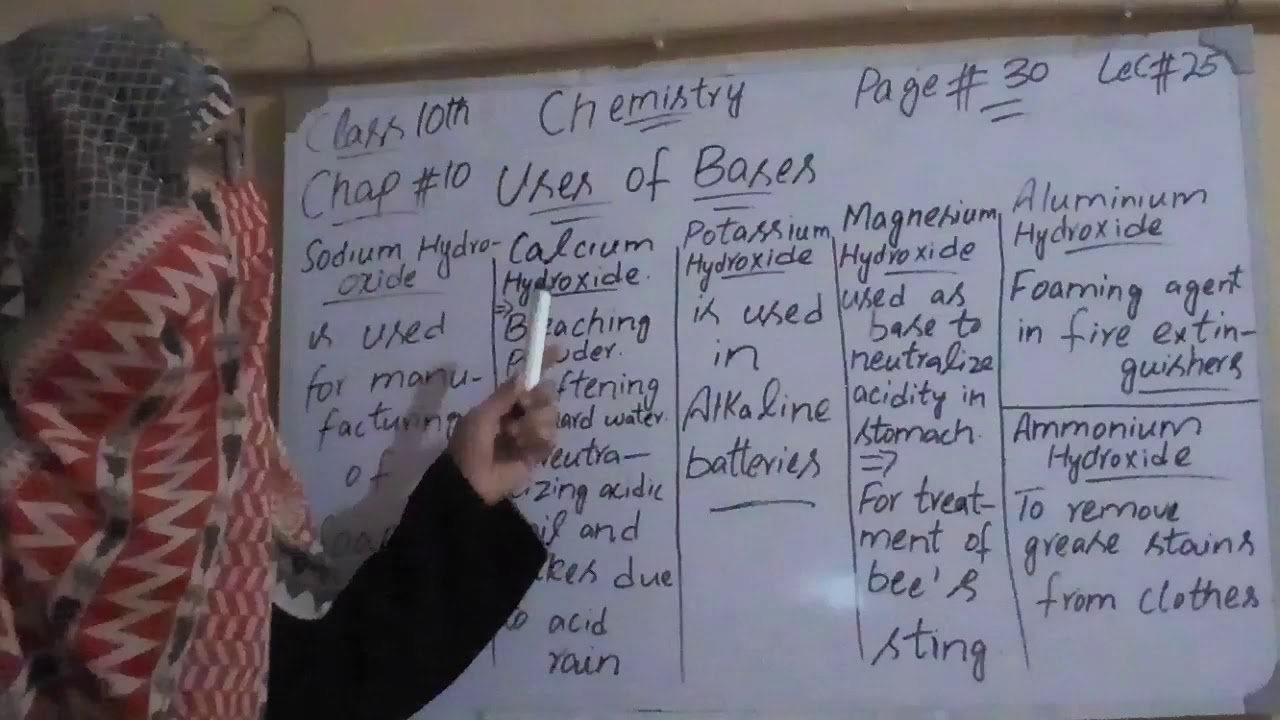 Class 10th Chemistry Page # 30 Lec # 25
Chap # 10 Uses of Bases
Sodium Hydro-
oxide
is used
for manu-
facturing
of
Calcium
Hydroxide.
⇒
Bleaching
Powder.
hard water.
neutra-
lizing acidic
soil and
lakes due
to acid
rain
Potassium
Hydroxide
is used
in
Alkaline
batteries
Magnesium
Hydroxide
used as
base to
neutralize
acidity in
stomach.
⇒
For treat-
ment of
bee's
sting
Aluminium
Hydroxide
Foaming agent
in fire extin-
guishers
Ammonium
Hydroxide
To remove
grease stains
from clothes